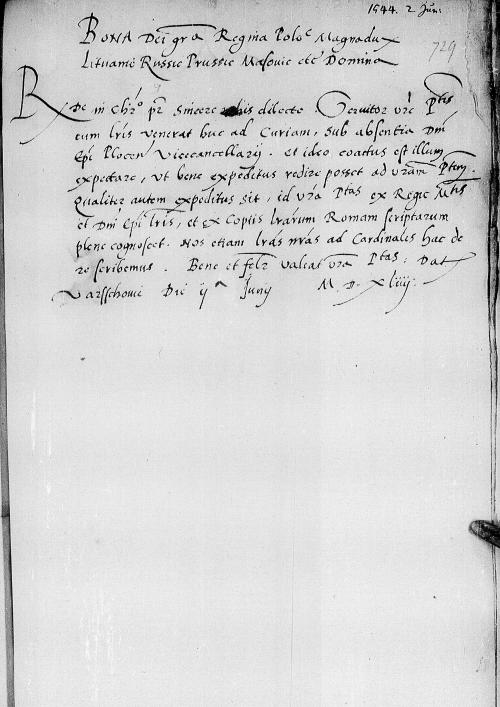 1544. 2 Jun.
729
BONA Dei gra Regina Poloe Magnadux
Lituanie Russie Prussie Masovie etc Domina
Rde in Chro pr sincere nobis dilecte. Servitor vre Ptis
cum lris venerat huc ad Curiam, sub absentia Dni
Epi Plocen Vicecancellarij. et ideo coactus est illum
expectare, ut bene expeditus redire posset ad vram Ptem.
Qualiter autem expeditus sit, id vra Ptas ex Regie Mtis
et Dni Epi lris, et ex Copiis lrarum Romam scriptarum
plene cognoscet. Nos etiam lras nras ad Cardinales hac de
re scribemus. Bene et felr valeat vra Ptas. Dat
Varsschovie Die ij Junij M. D. Xliiij.